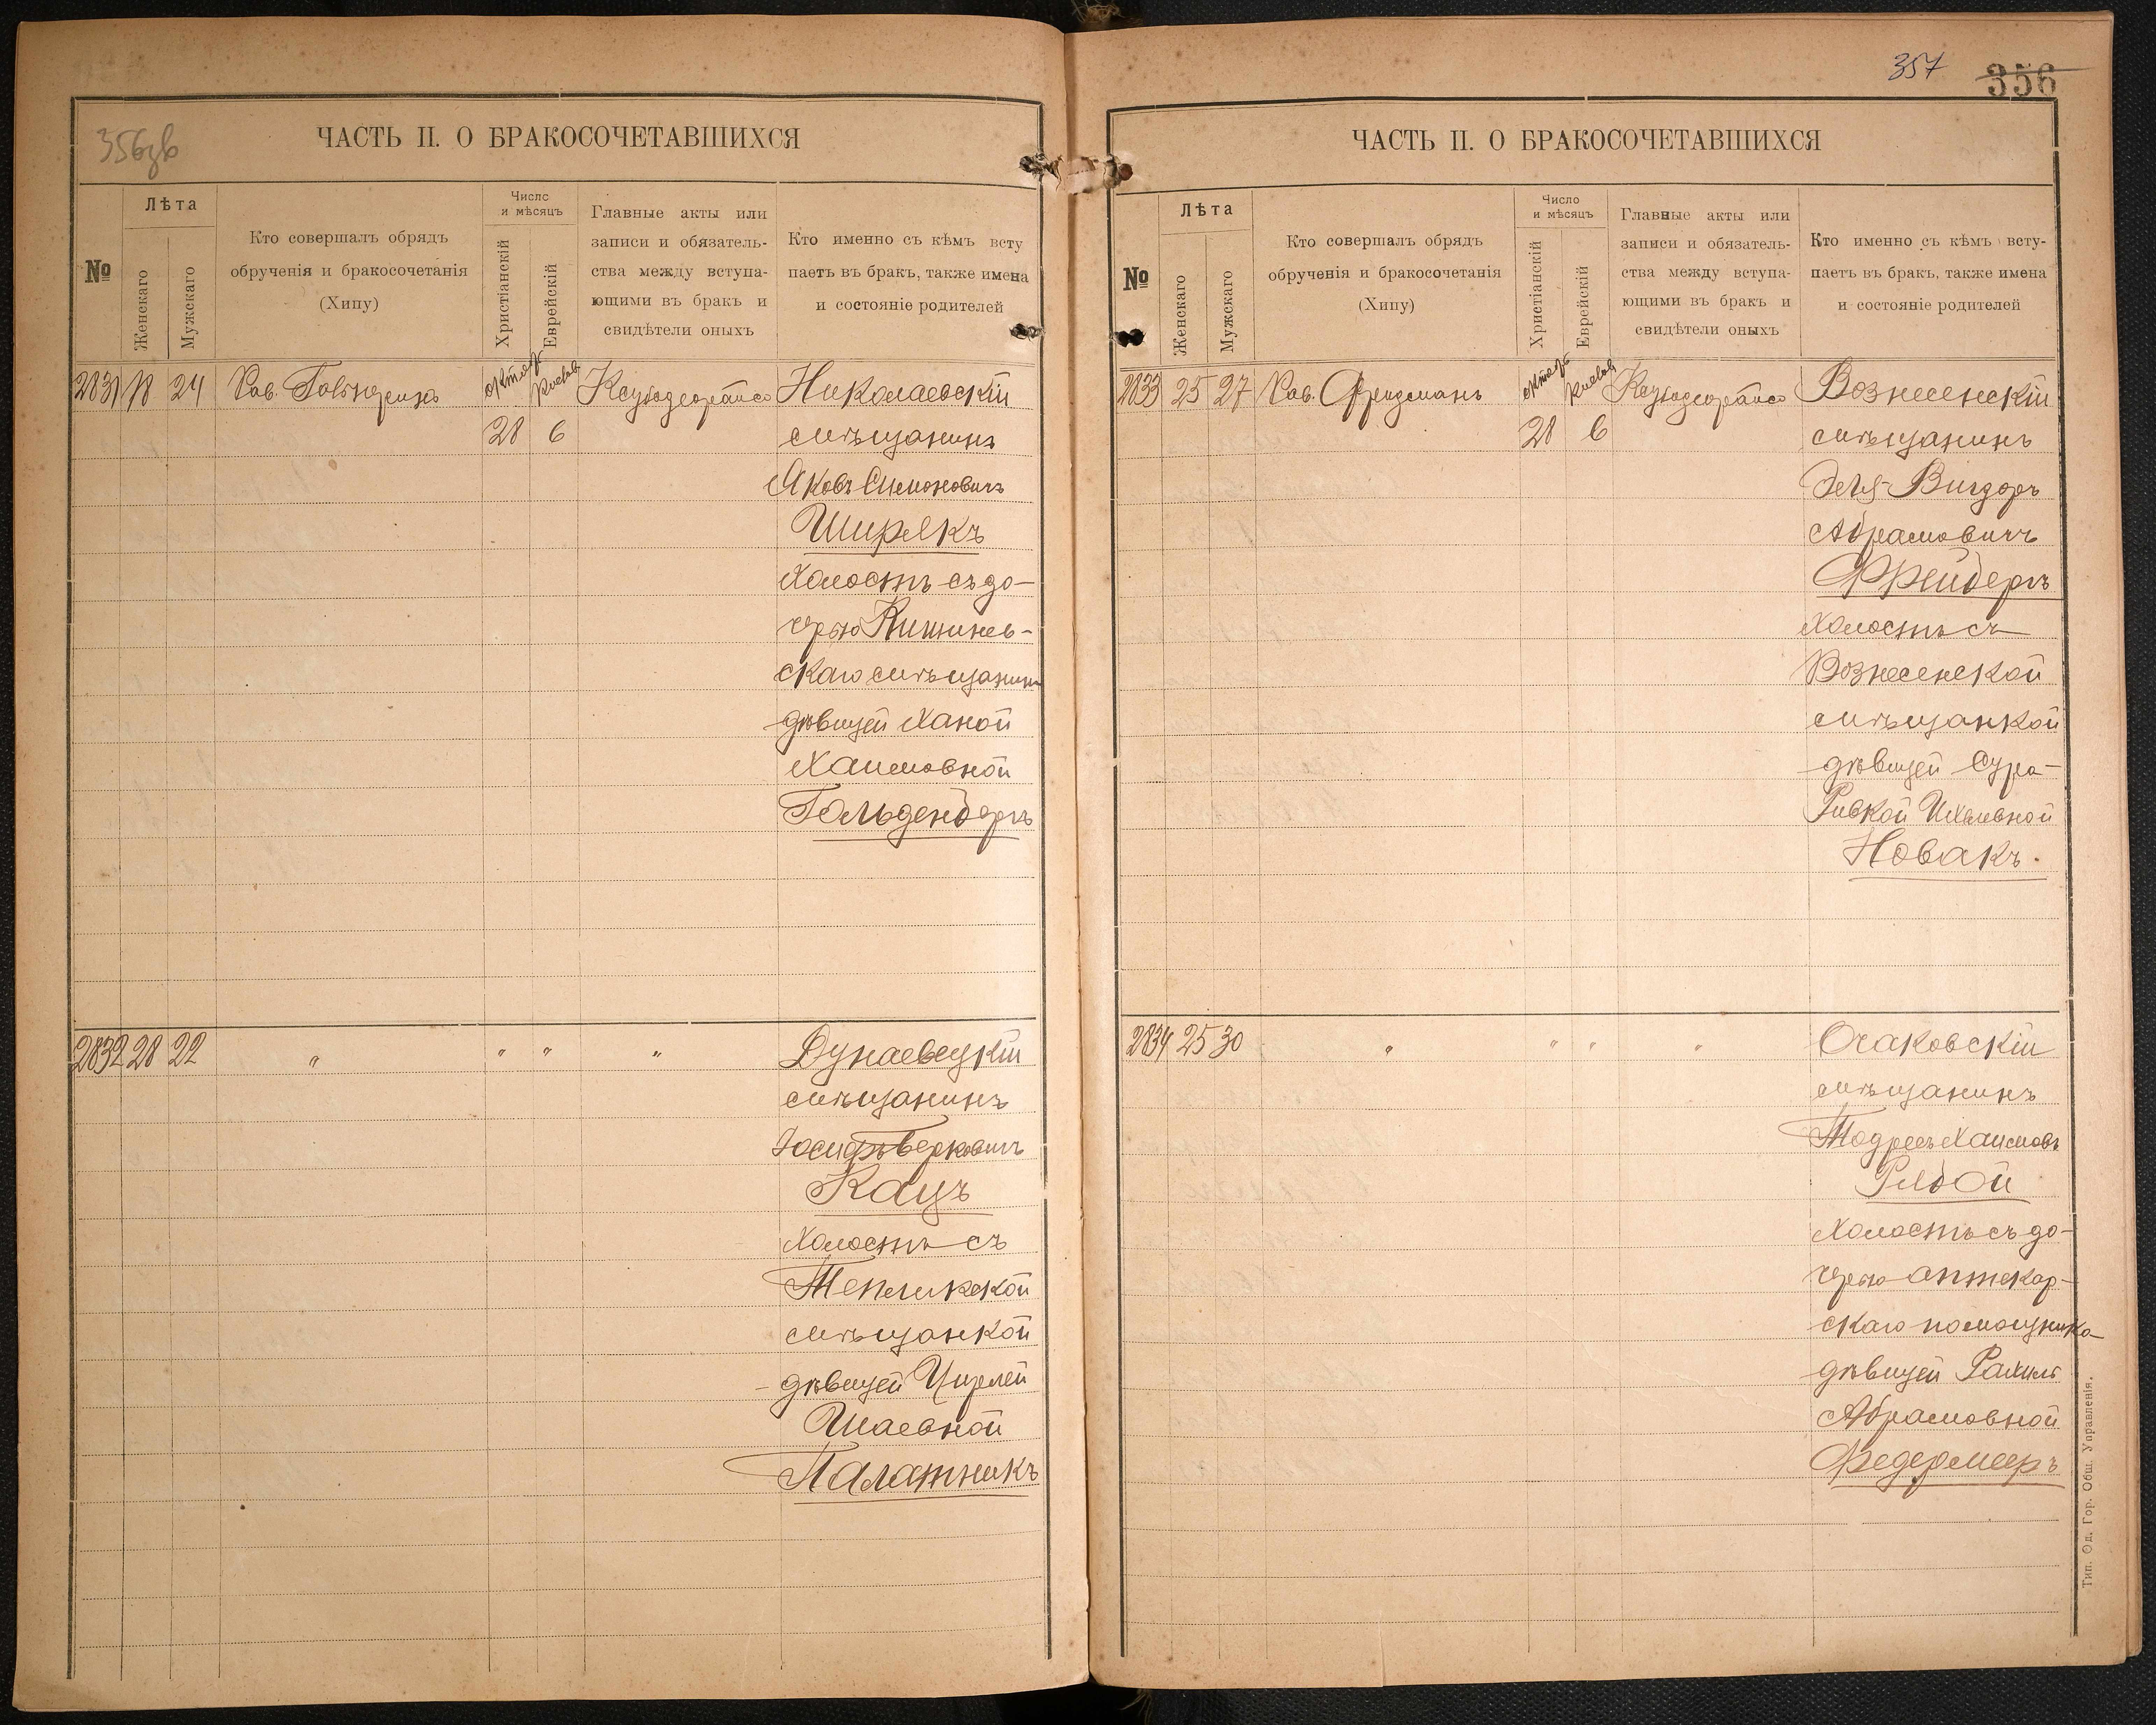 356зв
ЧАСТЬ II. О БРАКОСОЧЕТАВШИХСЯ
№
Лѣта
Женскаго
Мужскаго
Кто совершалъ обрядъ
обрученія и бракосочетанія
(Хипу)
Число
и мѣсяцъ
Христіанскій
Еврейскій
Главные акты или
записи и обязатель-
ства между вступа-
ющими въ бракъ и
свидѣтели оныхъ
Кто именно съ кѣмъ всту
паетъ въ бракъ, также имена
и состояніе родителей
2831 18 24 Рав. октяб 28 6 Николаевскій
мѣщанинъ
Яковъ Симоновичъ
Ширякъ
холостъ съ до-
черью Кишинев-
скаго мѣщанина
дѣвицей Ханой
Хаимовной
Гольденбергъ
2832 28 22 " " " " Дунаевецкій
мѣщанинъ
Іосифъ Берковичъ
Кацъ
холостъ съ
Тепликской
мѣщанкой
дѣвицей Цирлей
Шаевной
Палатникъ
357
356
ЧАСТЬ II. О БРАКОСОЧЕТАВШИХСЯ
№
Лѣта
Женскаго
Мужскаго
Кто совершалъ обрядъ
обрученія и бракосочетанія
(Хипу)
Число
и мѣсяцъ
Христіанскій
Еврейскій
Главные акты или
записи и обязатель-
ства между вступа-
ющими въ бракъ и
свидѣтели оныхъ
Кто именно съ кѣмъ всту-
паетъ въ бракъ, также имена
и состояніе родителей
2833 25 27 Рав. Фридманъ октяб 28 6 Вознесенскій
мѣщанинъ
Эля-Вигдоръ
Абрамовичъ
Фрейбергъ
холостъ съ
Вознесенской
мѣщанкой
дѣвицей Сура-
Ривкой Ихелевной
Новакъ.
2834 25 30 " " " " Очаковскій
мѣщанинъ
Тодресъ Хаимовъ
Рябой
холостъ съ до-
черью аптекар-
скаго помощника
дѣвицей Рахиль
Абрамовной
Федермееръ
Тип. Од. Гор. Общ. Управленія.